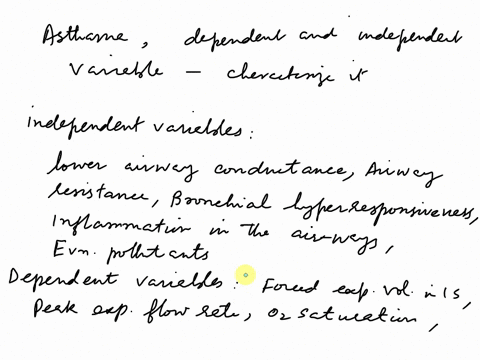 Asthame, dependent and independent
Variable - cherecterize it
independent variables:
lower airway conductance, Airway
resistance, Bronchial hyperresponsiveness,
Inflammation in the airways,
Evn. pollutants
Dependent variables: Forced exp. vol. in 1s,
Peak exp. flow rate, O2 saturation,